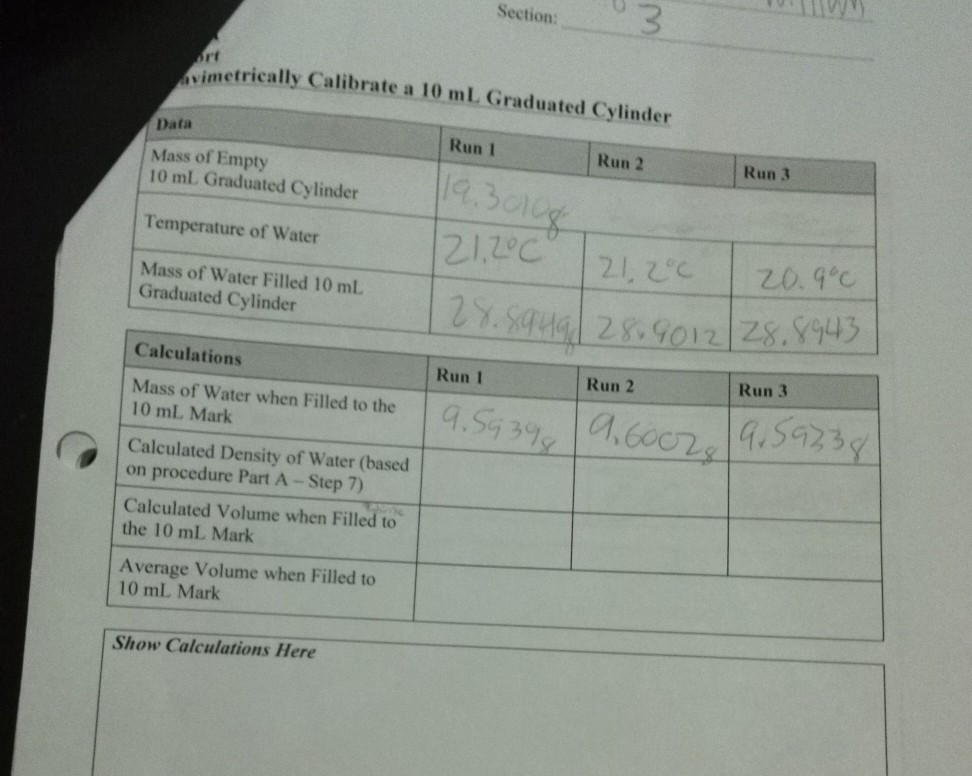 Section: 3
ort
avimetrically Calibrate a 10 mL Graduated Cylinder
Data Run 1 Run 2 Run 3
Mass of Empty
10 mL Graduated Cylinder 19.3010g
Temperature of Water 21.2°C 21.2°C 20.9°C
Mass of Water Filled 10 mL
Graduated Cylinder 28.8949g 28.9012 28.8943
Calculations Run 1 Run 2 Run 3
Mass of Water when Filled to the
10 mL Mark 9.5939g 9.6002g 9.5933g
Calculated Density of Water (based
on procedure Part A – Step 7)
Calculated Volume when Filled to
the 10 mL Mark
Average Volume when Filled to
10 mL Mark
Show Calculations Here